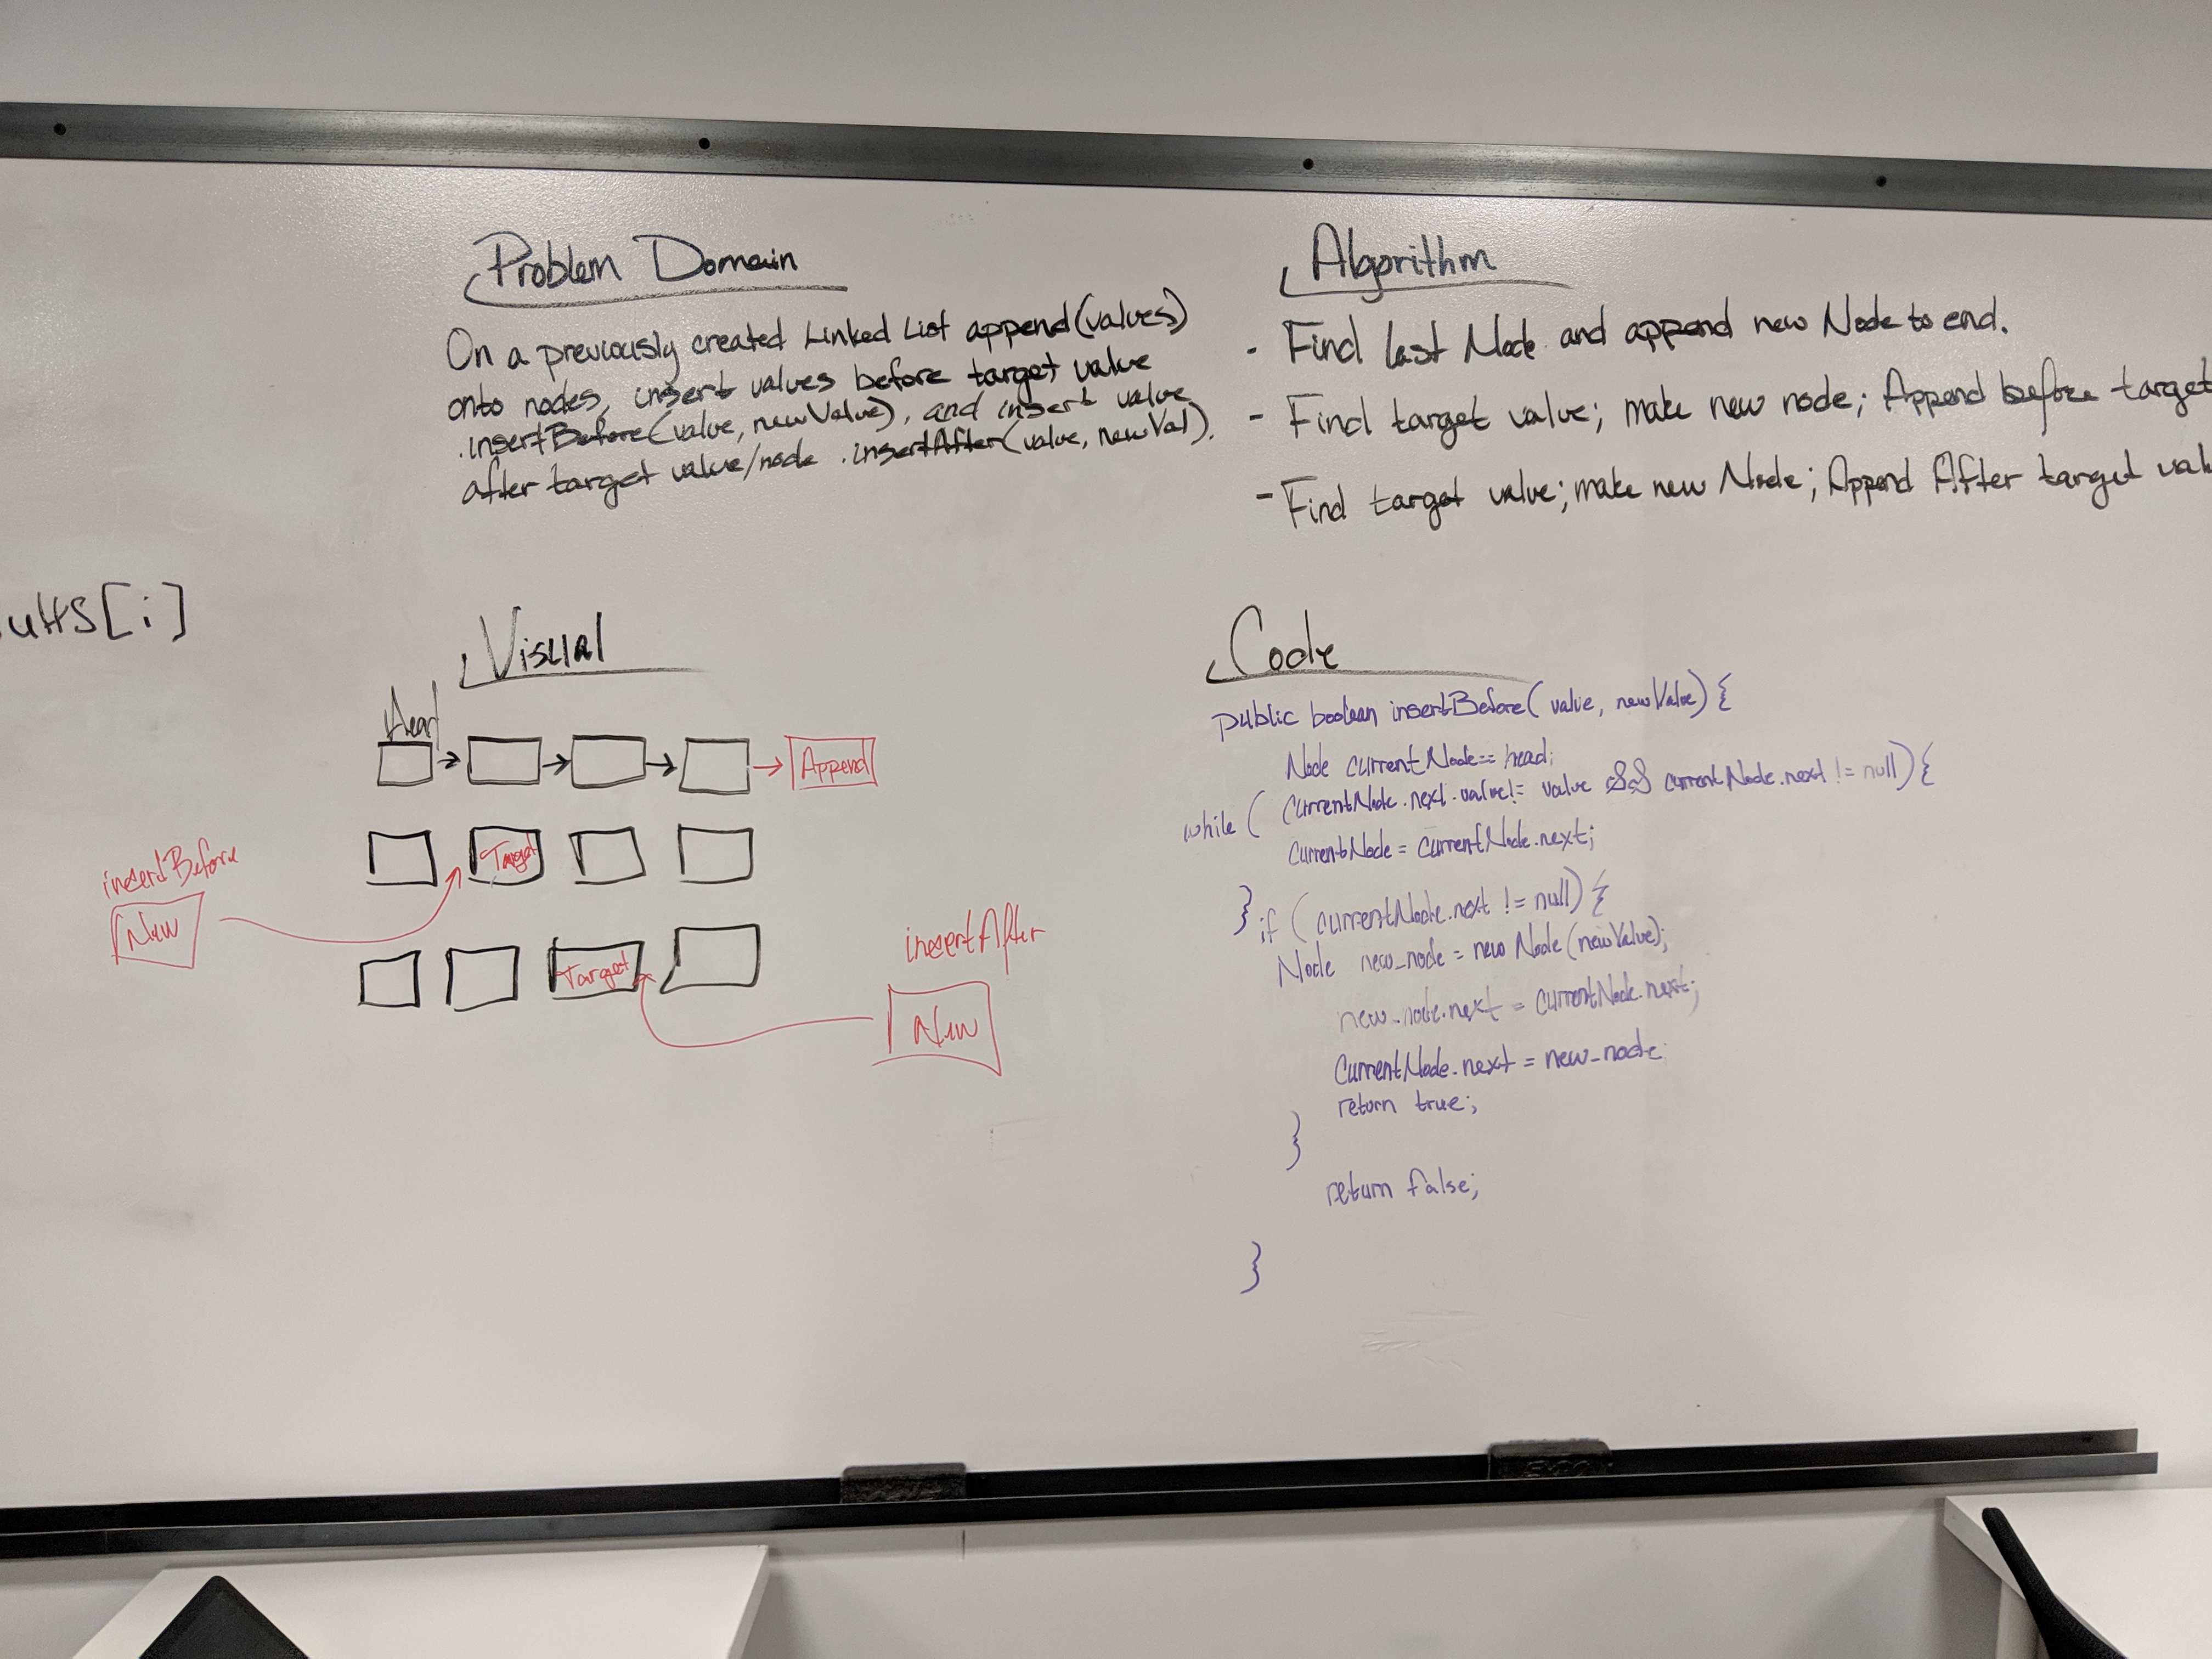 Problem Domain
On a previously created Linked List append(values)
onto nodes, insert values before target value
.insertBefore(value, newValue), and insert value
after target value/node .insertAfter(value, newVal).
Algorithm
- Find last Node and append new Node to end.
- Find target value; make new node; Append before target
- Find target value; make new Node; Append After target val
ults[i]
Visual
Head
Append
insertBefore
New
Target
Target
insertAfter
New
Code
public boolean insertBefore( value, newValue) {
Node currentNode == head;
while ( currentNode.next.value != value && currentNode.next != null) {
currentNode = currentNode.next;
} if ( currentNode.next != null) {
Node new_node = new Node(newValue);
new_node.next = currentNode.next;
currentNode.next = new_node
return true;
}
return false;
}